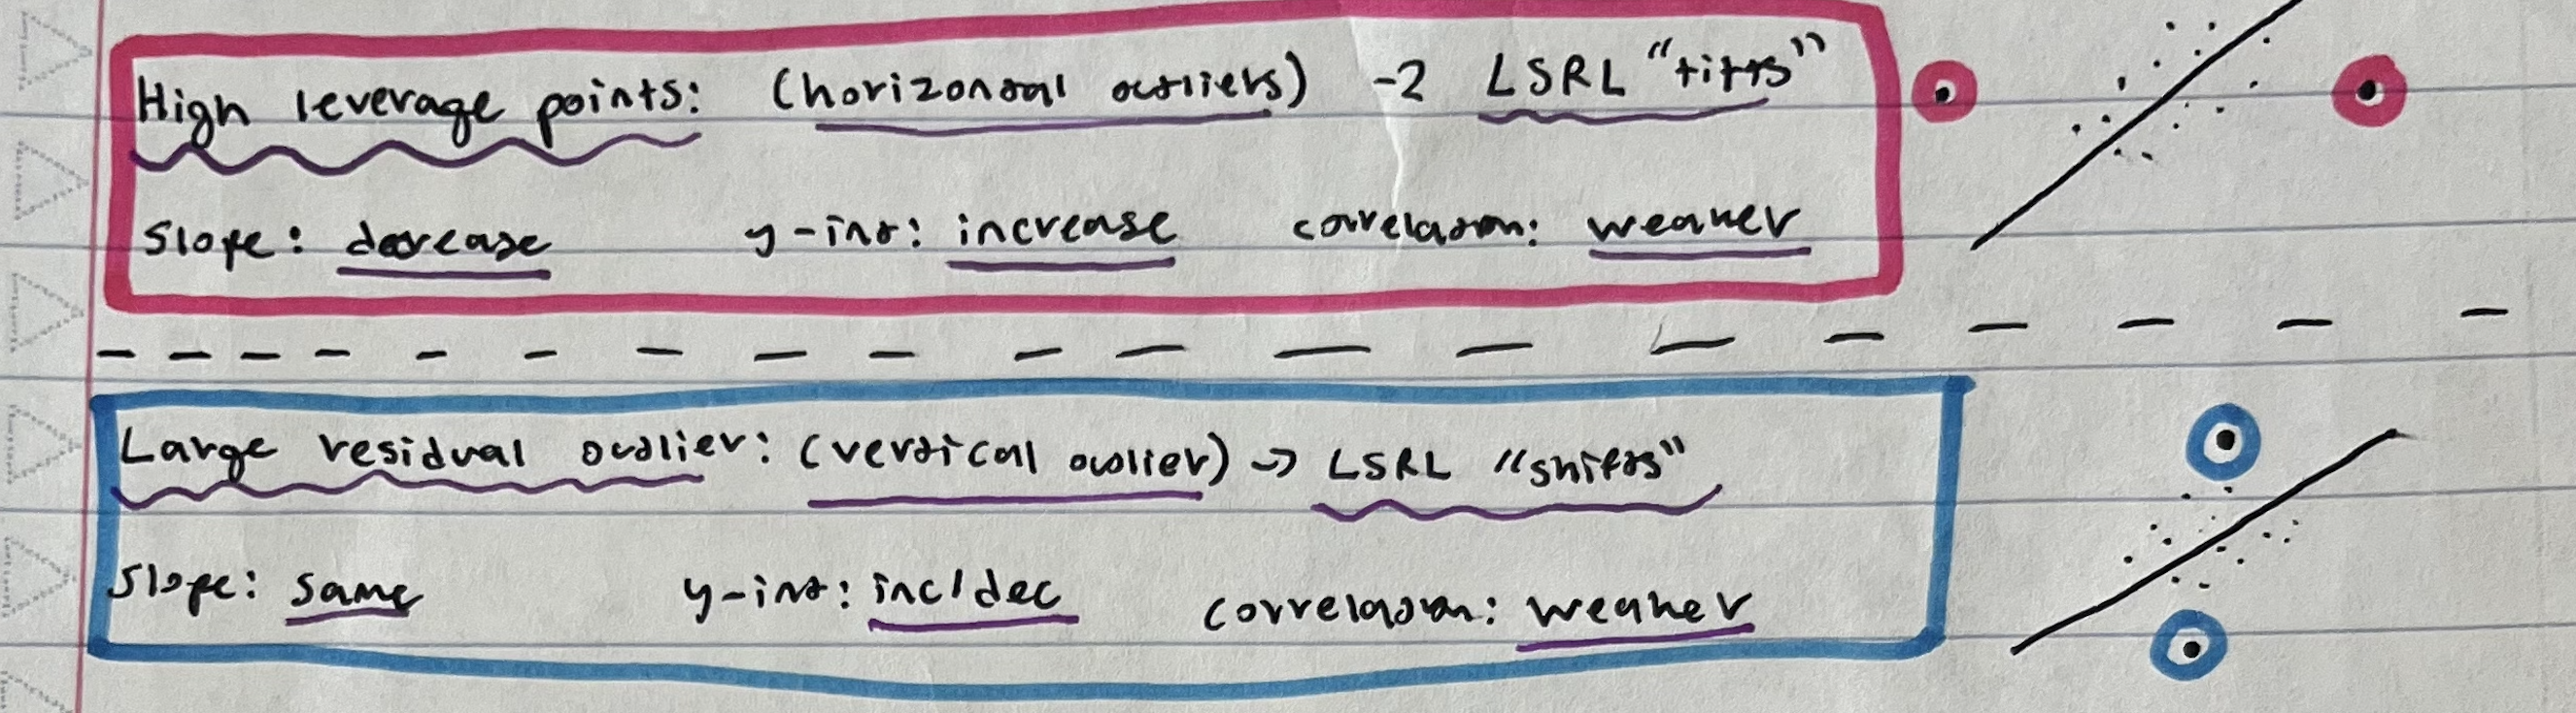 High leverage points: (horizontal outliers) -> LSRL "tilts"
slope: decrease y-int: increase correlation: weaker
Large residual outlier: (vertical outlier) -> LSRL "shifts"
slope: same y-int: inc/dec correlation: weaker